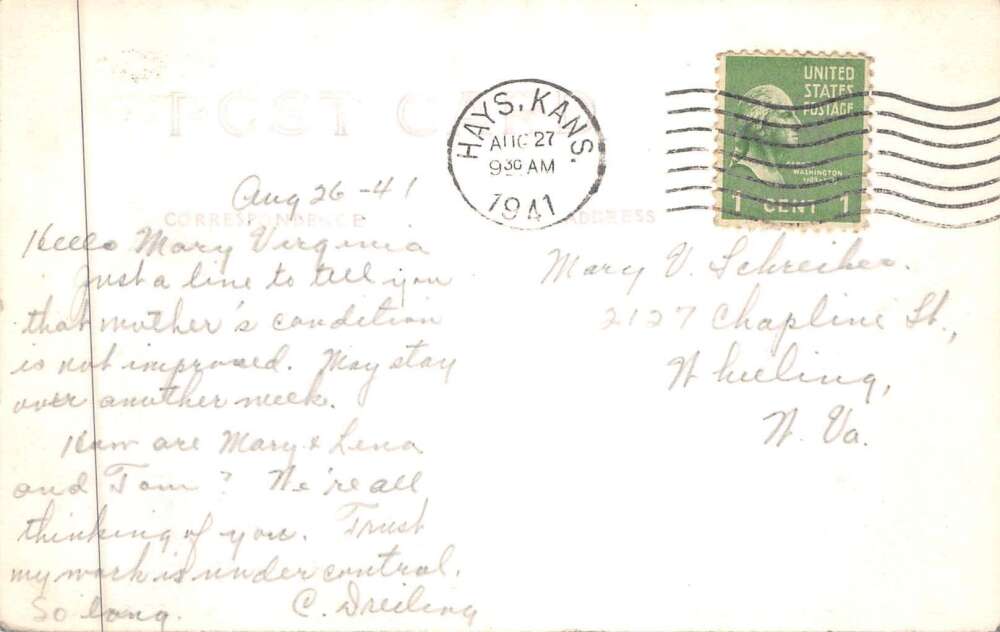 POST CARD
HAYS, KANS.
AUG 27
9 30 AM
1941
UNITED
STATES
POSTAGE
WASHINGTON
1 CENT 1
CORRESPONDENCE
ADDRESS
Aug 26-41
Hello Mary Virginia
Just a line to tell you
that mother's condition
is not improved. May stay
over another week.
How are Mary & Lena
and Tom? We're all
thinking of you. Trust
my work is under control.
So long. C. Dreiling
Mary V. Schreiber.
2127 Chapline St.,
Wheeling,
W. Va.